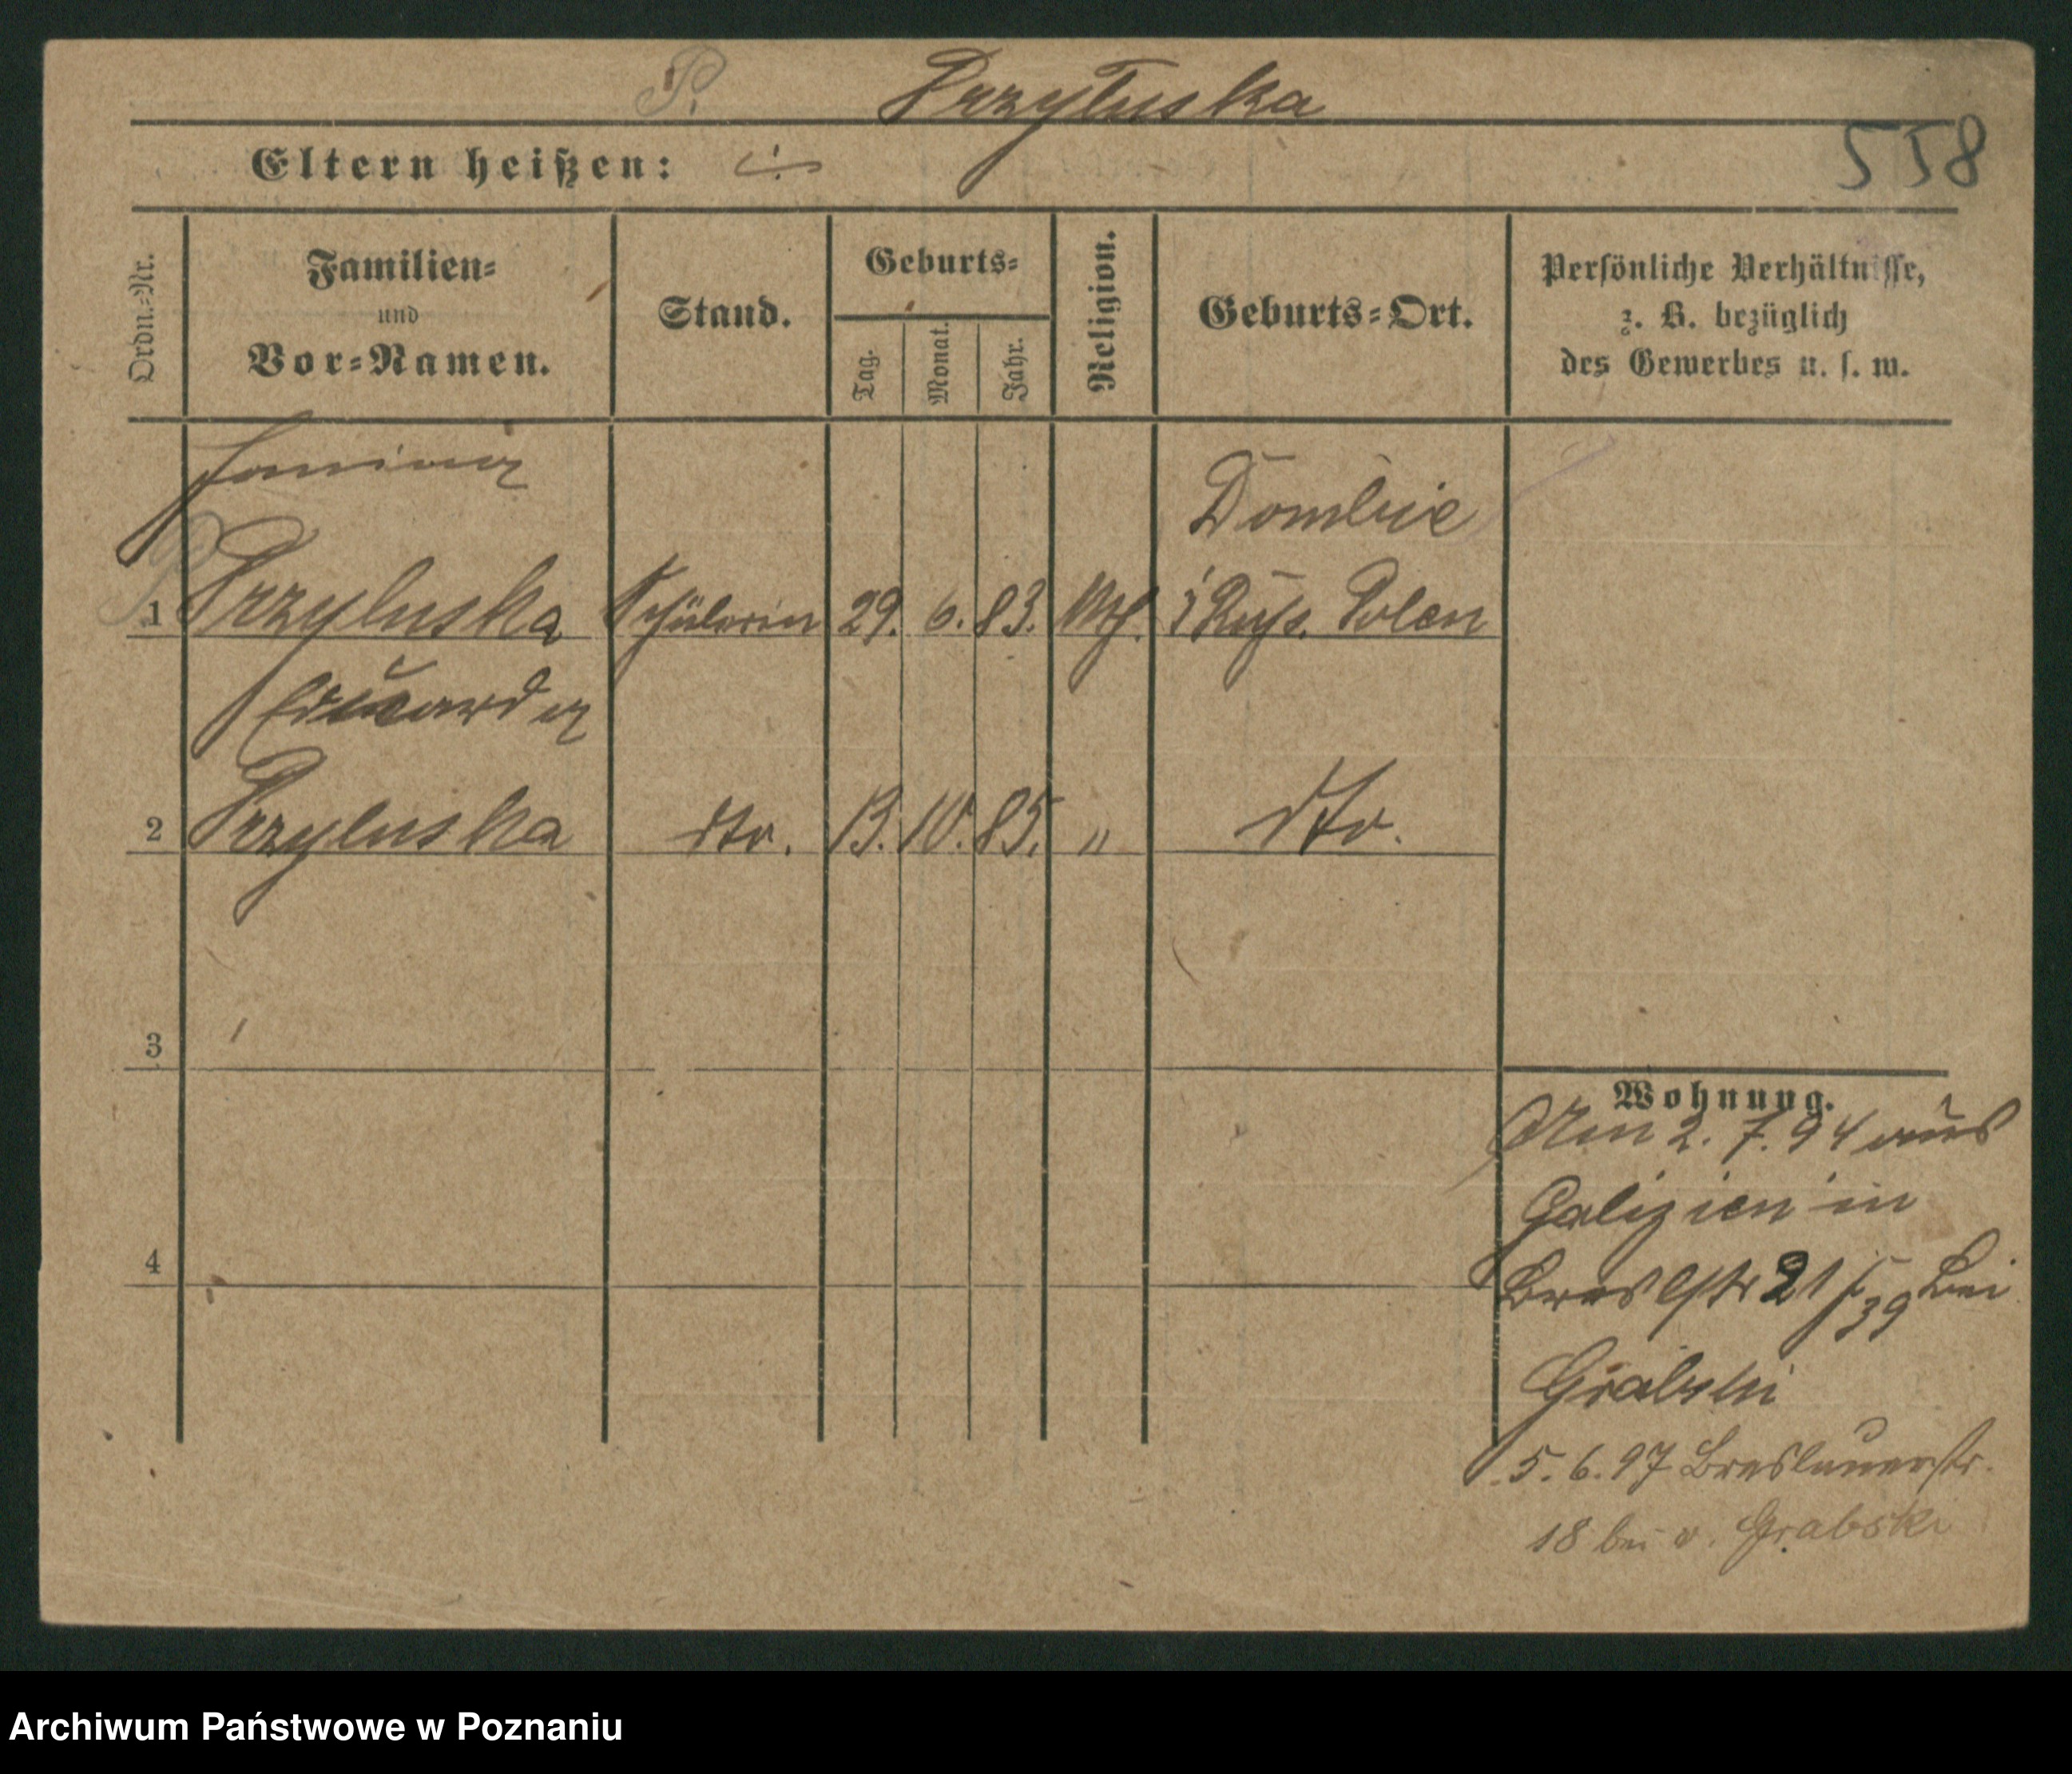 P. Przyłuska
558
Eltern heißen:
Ordn.=Nr.
Familien=
und
Vor=Namen.
Stand.
Geburts=
Tag.
Monat.
Jahr.
Religion.
Geburts=Ort.
Persönliche Verhältnisse,
z. B. bezüglich
des Gewerbes u. s. w.
Dombie
1 Przyluska Schülerin 29. 6. 83. kth. i Russ. Polen
Eduarda
2 Przyluska dto. 13. 10. 85. " dto.
3
4
Wohnung.
Am 2. 7. 94 aus
Galizien in
Breslstr 21 39 bei
Grabski
5. 6. 97 Breslauerstr.
18 bei v. Grabski
Archiwum Państwowe w Poznaniu